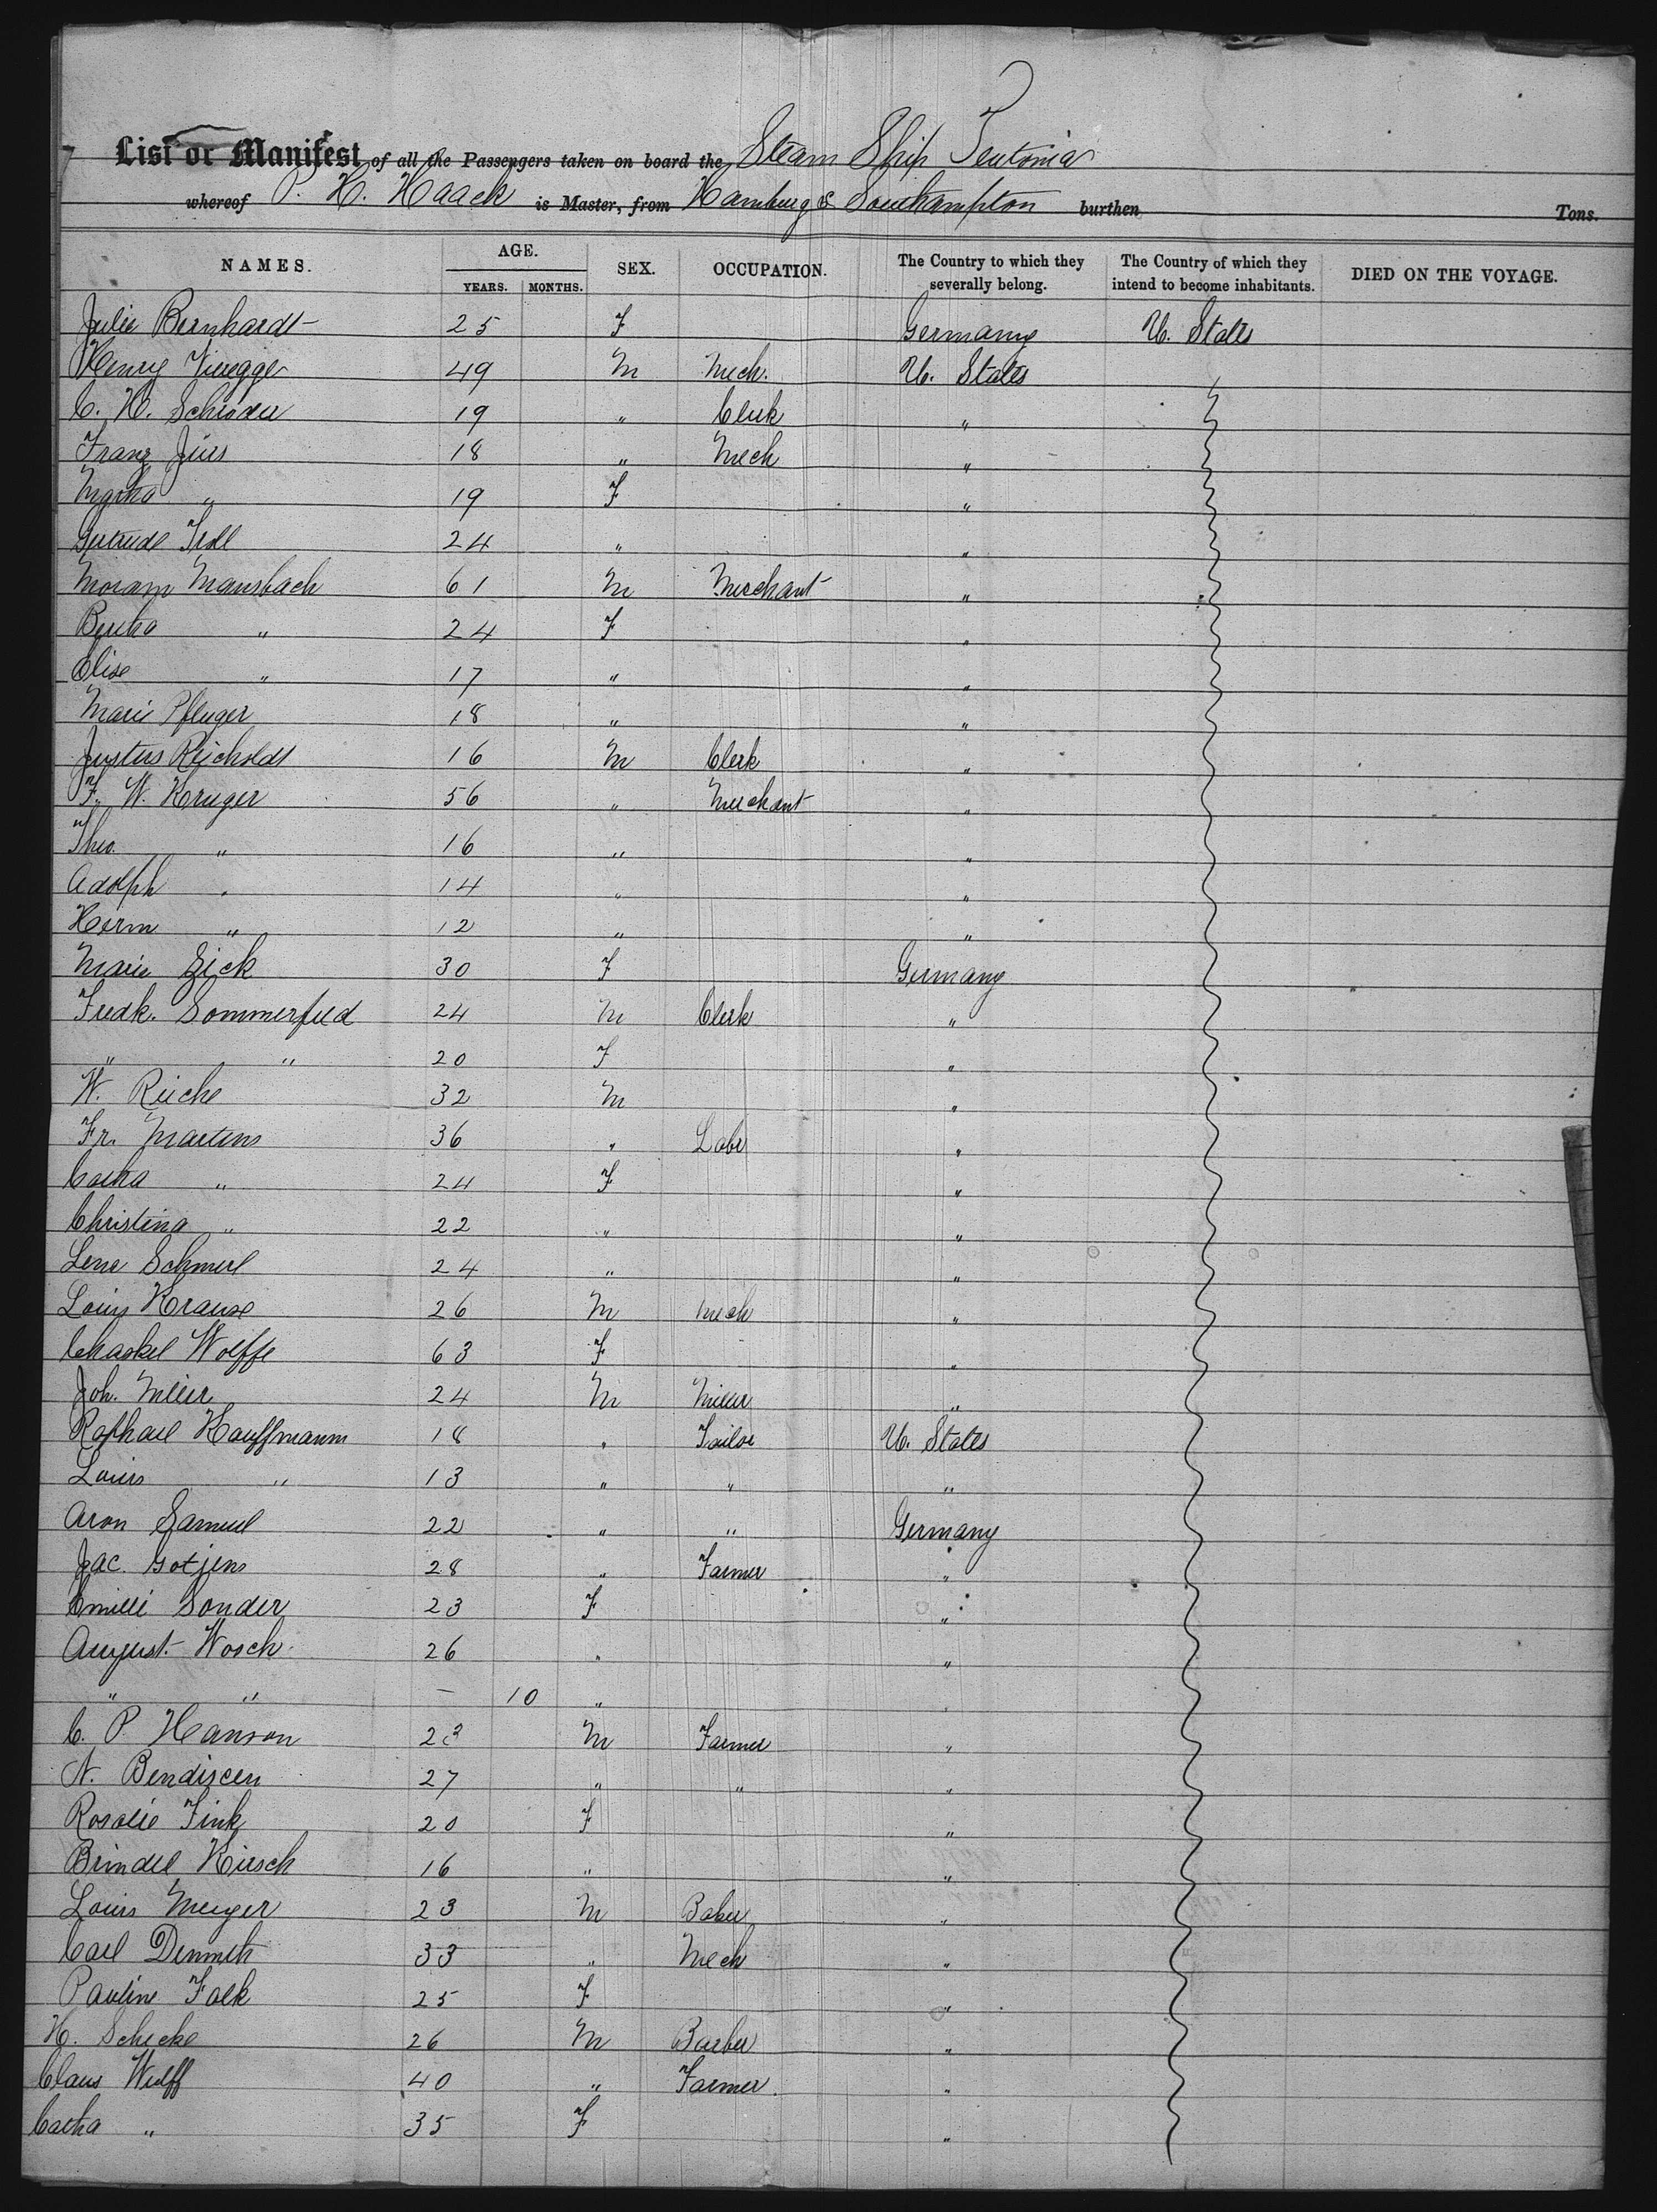 List or Manifest of all the Passengers taken on board the Steam Ship Teutonia
whereof P. H. Haack is Master, from Hamburg & Southampton burthen Tons.
NAMES. AGE. SEX. OCCUPATION. The Country to which they severally belong. The Country of which they intend to become inhabitants. DIED ON THE VOYAGE.
YEARS. MONTHS.
Julie Bernhardt 25 F Germany U. States
Henry Vieregge 49 M Mech. U. States
C. H. Schroder 19 " Clerk "
Franz 18 " Mech "
Martha " 19 F "
Gertrude Troll 24 " "
Mansbach 61 M Merchant "
Bertha " 24 F "
Elise " 17 " "
Marie Pfluger 18 " "
Justus Reicholdt 16 M Clerk "
F. W. Kruger 56 " Merchant "
Theo. " 16 " "
Adolph " 14 " "
Herm " 12 " "
Marie Zick 30 F Germany
Fredk. Sommerfeld 24 M Clerk "
" " 20 F "
W. Reiche 32 M "
Fr. Martens 36 " Labr "
Catha " 24 F "
Christina " 22 " "
Lene 24 " "
Louis Krause 26 M Mech "
Chaskel Wolffe 63 F "
Joh. Meier 24 M Miller "
Raphael Kauffmann 18 " Tailor U. States
Louis " 13 " " "
Aron Samuel 22 " " Germany
Jac. Gotjens 28 " Farmer "
Emilie Sonder 23 F "
August. Wosch 26 " "
" " — 10 " "
C. P. Hanson 23 M Farmer "
N. Bendixen 27 " " "
Rosalie Fink 20 F "
Brindel Hirsch 16 " "
Louis Meyer 23 M Baker "
Carl 33 " Mech "
Pauline Falk 25 F "
H. Schicke 26 M Barber "
Claus Wulff 40 " Farmer "
Catha " 35 F "